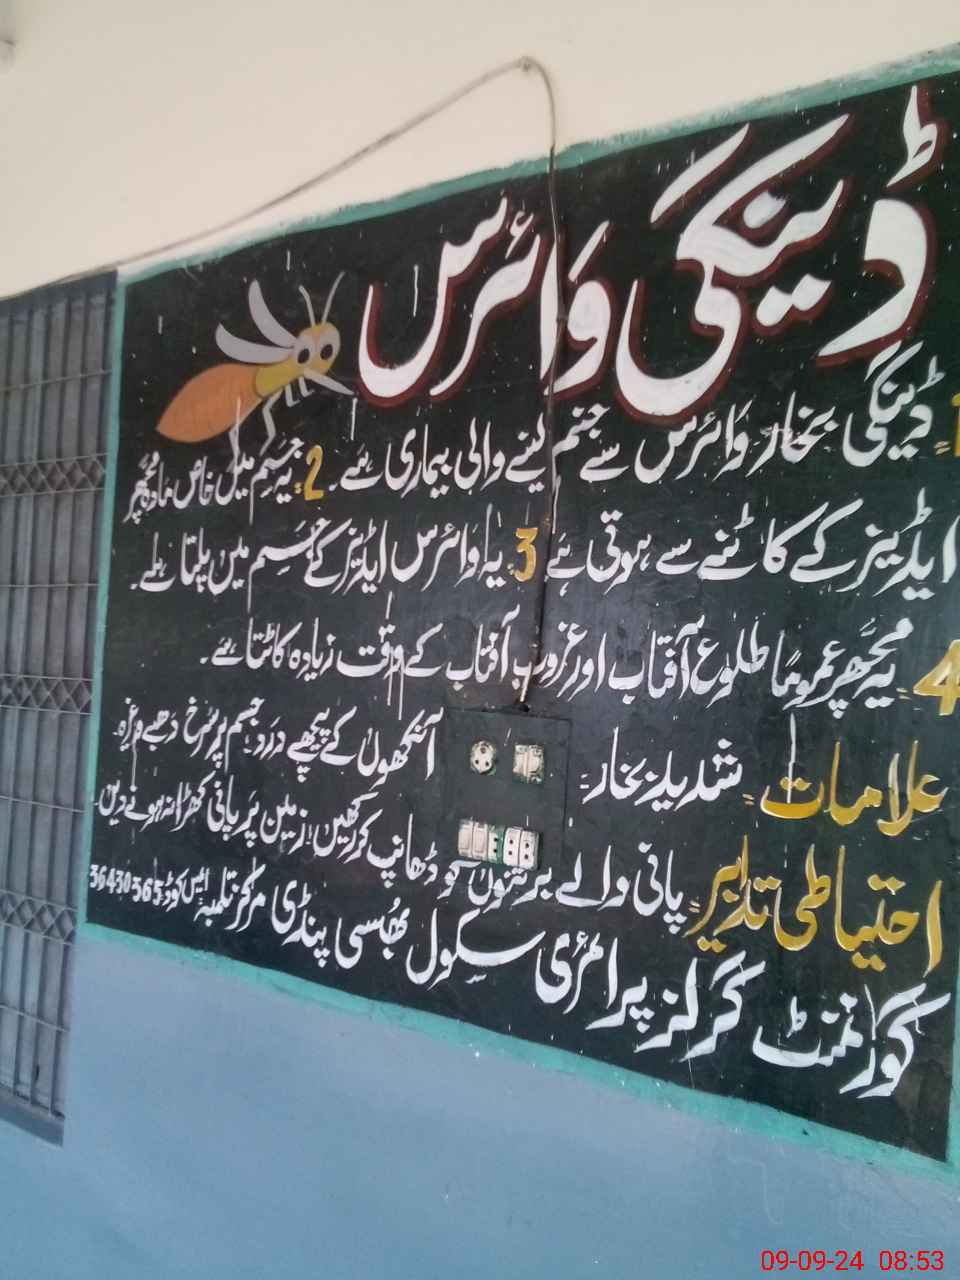 ڈینگی وائرس
1= ڈینگی بخار وائرس سے جنم لینے والی بیماری ہے۔ 2= یہ جسم میں خاص مادہ مچھر
ایڈیز کے کاٹنے سے ہوتی ہے 3= یہ وائرس ایڈیز کے جسم میں پلتا ہے۔
4= یہ مچھر عموماً طلوع آفتاب اور غروب آفتاب کے وقت زیادہ کاٹتا ہے۔
علامات = شدید بخار = آنکھوں کے پیچھے درد جسم پر سرخ دھبے وغیرہ۔
احتیاطی تدابیر = پانی والے برتنوں کو ڈھانپ کر رکھیں زمین پر پانی کھڑا نہ ہونے دیں۔
گورنمنٹ گرلز پرائمری سکول بھُسی پنڈی مرکز تلمبہ ایمس کوڈ 36430365
09-09-24 08:53